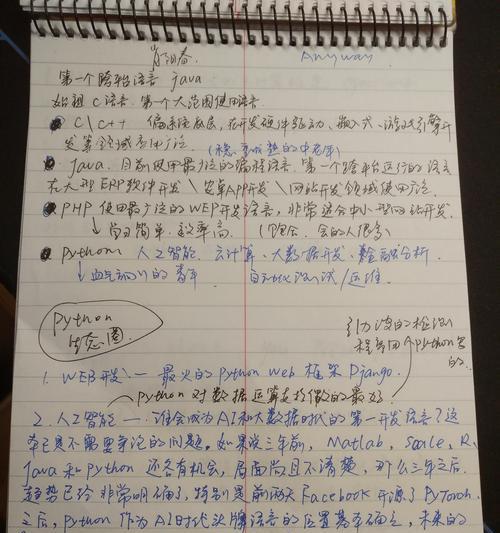 Anyway
第一个跨平台语言 java
始祖 C语言 第一个大范围使用语言
C \ C++ 偏系统底层, 在开发硬件驱动、嵌入式、游戏引擎开
发等领域应用广泛
(稳重成熟的中老年)
java. 目前使用最广泛的编程语言 第一个跨平台运行的语言
在大型ERP软件开发 \ 安卓APP开发 \ 网站开发领域使用广泛.
PHP 使用最广泛的WEP开发语言, 非常适合中小型网站开发.
↓ 学习简单. 效率高. 会的人很多)
python 人工智能. 云计算、大数据开发、金融分析.
↓ 血气方刚的青年 自动化测试/运维
python
生态圈.
引力波的检测
程序用python写
的.
1. WEB开发 \ — 最火的python web 框架 Django.
python 对数据运算支持做的最好
2. 人工智能 —— 谁会成为AI和大数据时代的第一开发语言? 这
本已是不需要争论的问题. 如果说三年前, Matlab, Scale, R,
Java 和 python 还各有机会, 局面尚且不清楚, 那么三年之后.
趋势已经非常明确了, 特别是前两天 Facebook 开源了 PyTorch
之后, python 作为AI时代头牌语言的位置基本确立, 未来的